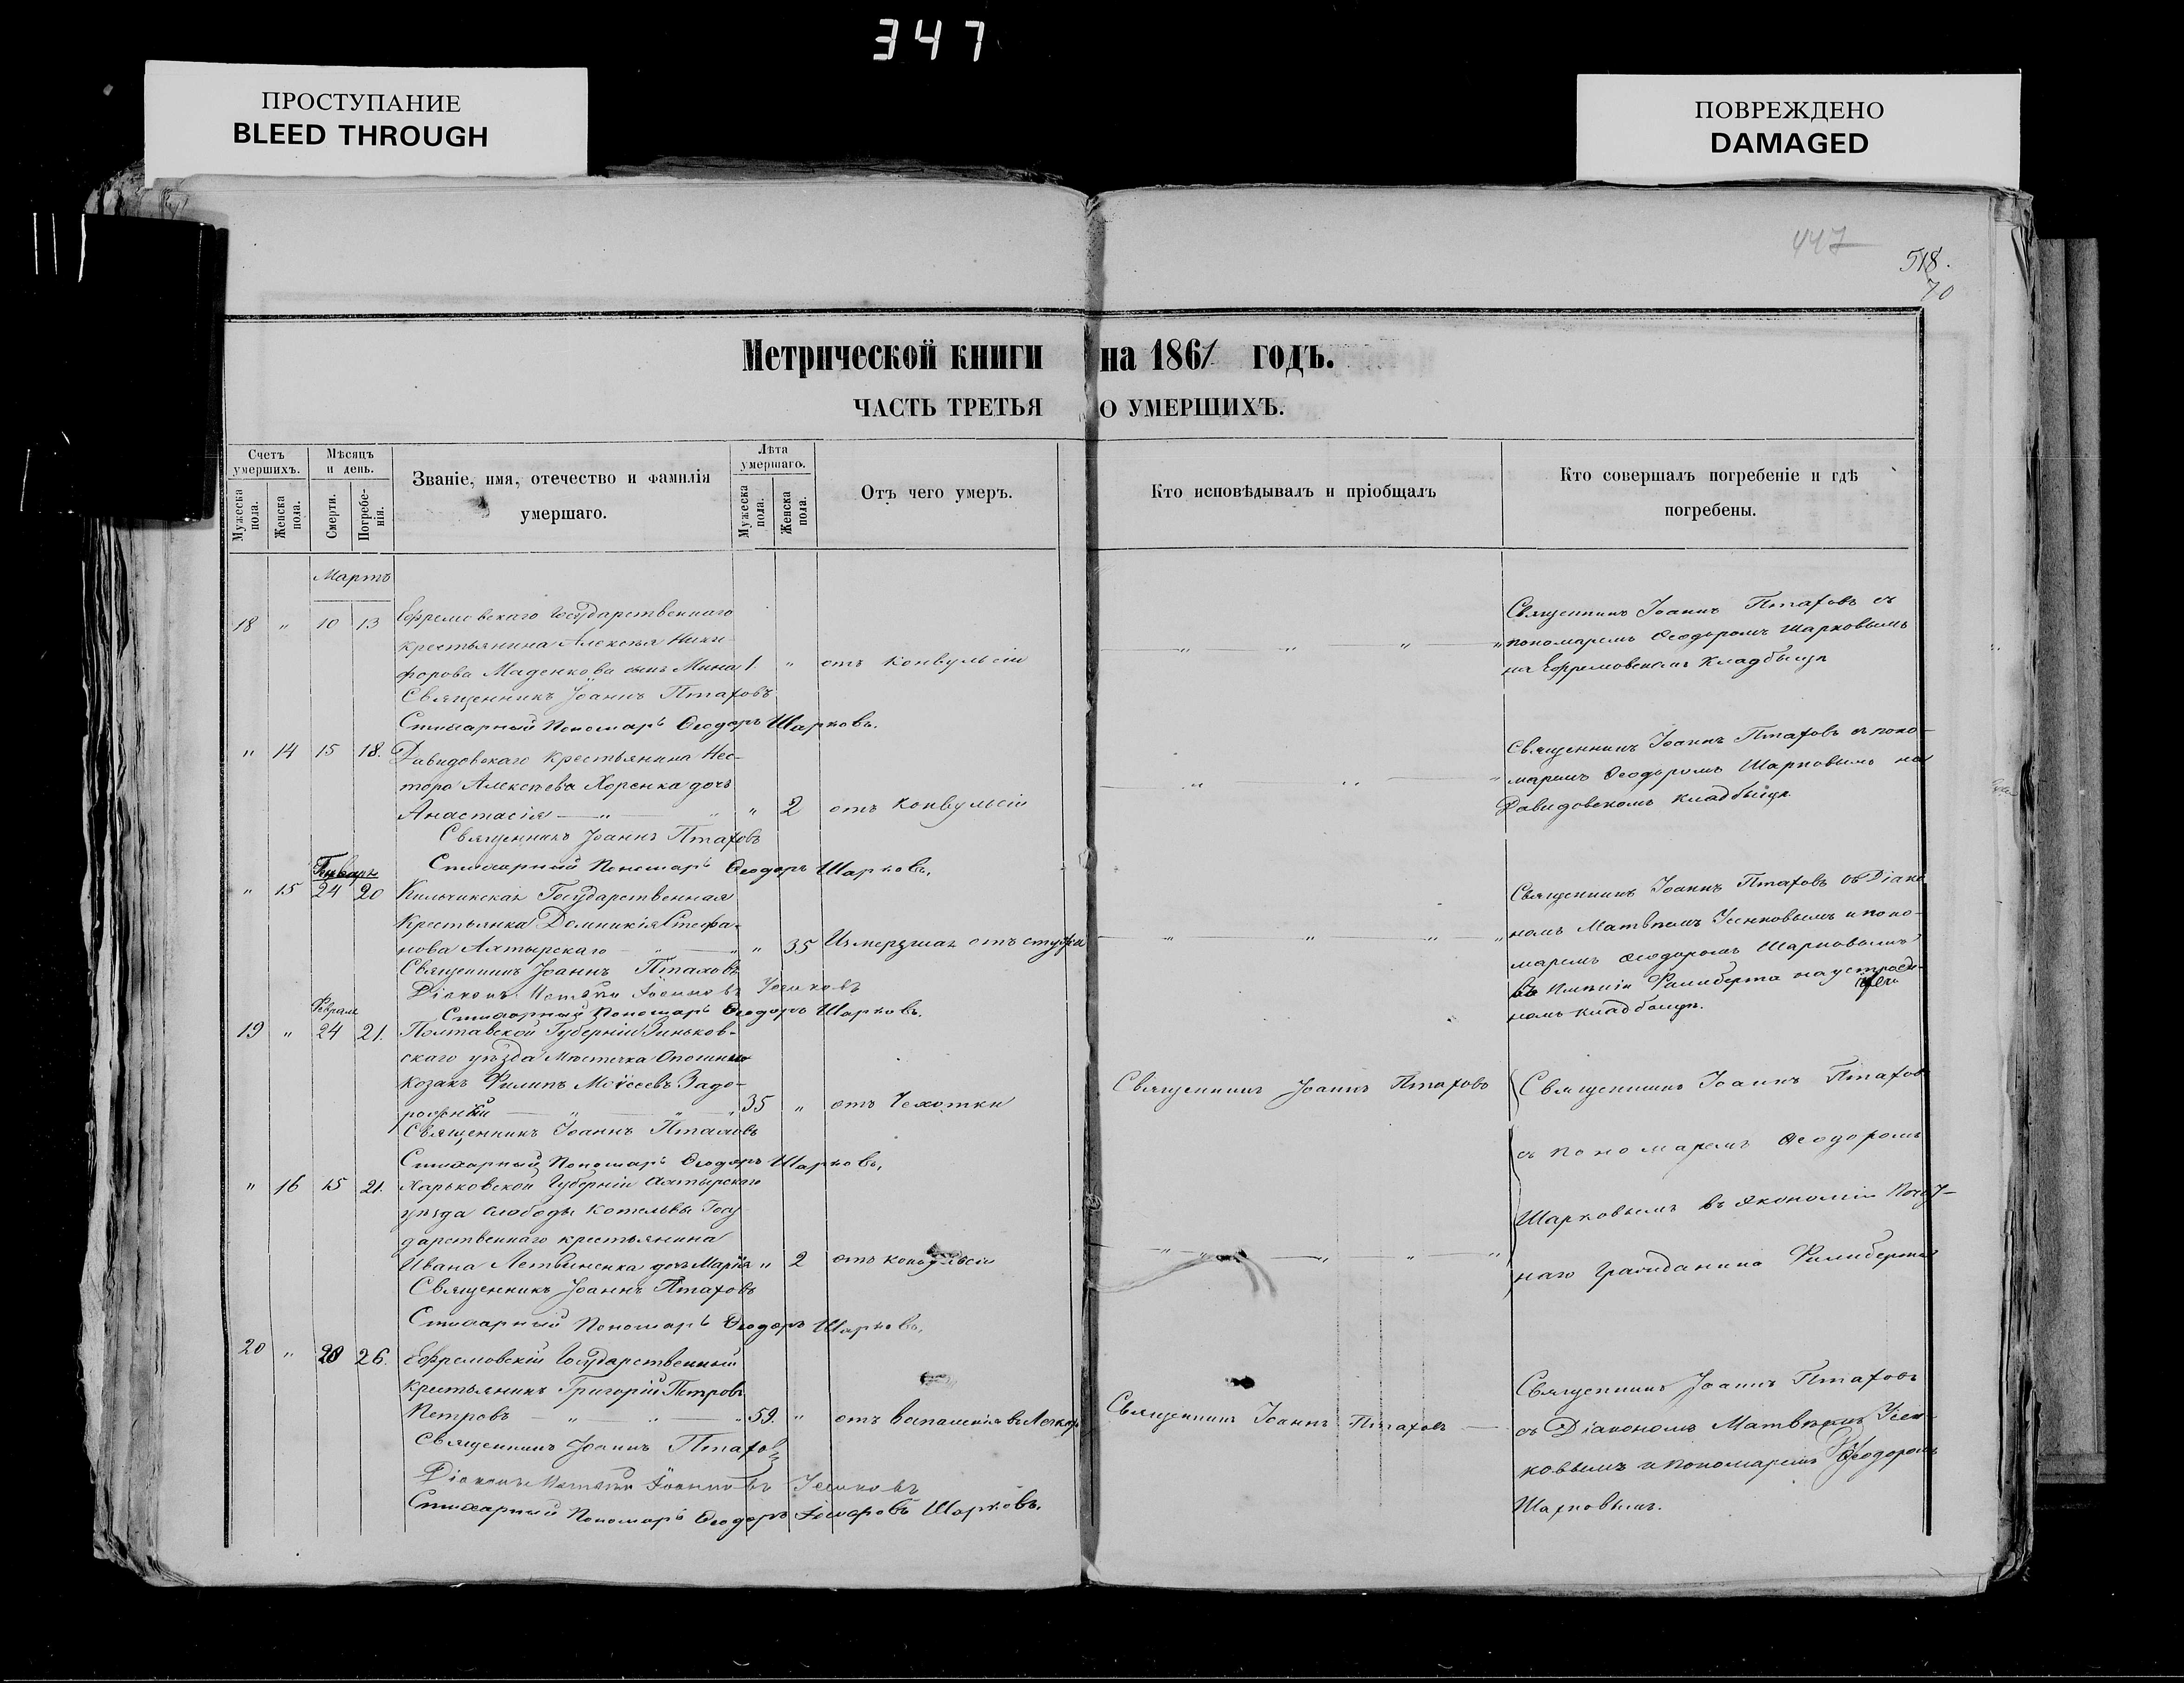 347
ПРОСТУПАНИЕ
BLEED THROUGH
ПОВРЕЖДЕНО
DAMAGED
447
518.
70
Метрической книги на 1861 годъ.
ЧАСТЬ ТРЕТЬЯ О УМЕРШИХЪ.
Счетъ умершихъ.
Мужеска пола.
Женска пола.
Мѣсяцъ и день.
Смерти.
Погребенія.
Званіе, имя, отечество и фамилія умершаго.
Лѣта умершаго.
Мужеска пола.
Женска пола.
Отъ чего умеръ.
Кто исповѣдывалъ и пріобщалъ
Кто совершалъ погребеніе и гдѣ погребены.
Мартъ
18 " 10 13 Ефремовскаго Государственнаго
крестьянина Алексѣя Ники-
форова Маденкова сынъ Мина 1. " отъ конвульсіи
Священникъ Іоаннъ Птаховъ
Стихарный Пономарь Ѳеодоръ Шарковъ.
Священникъ Іоаннъ Птаховъ съ
пономаремъ Ѳеодоромъ Шарковымъ
на Ефремовскомъ Кладбищѣ
" 14 15 18. Давидовскаго Крестьянина Нес-
тора Алексѣева Хоренка дочь
Анастасія " 2 отъ конвульсіи
Священникъ Іоаннъ Птаховъ
Стихарный Пономарь Ѳеодоръ Шарковъ.
Священникъ Іоаннъ Птаховъ съ поно-
маремъ Ѳеодоромъ Шарковымъ на
Давидовскомъ кладбищѣ
Январь
" 15 24 20 Государственная
Крестьянка Домникія Стефа-
нова Ахтырскаго " 35 Измерзшая отъ стужи
Священникъ Іоаннъ Птаховъ
Діаконъ Матѳій Іоанновъ
Стихарный Пономарь Ѳеодоръ Шарковъ.
Священникъ Іоаннъ Птаховъ съ Діако-
номъ Матвѣемъ и поно-
маремъ Ѳеодоромъ Шарковымъ
въ имѣніи Филиберта на
номъ кладбищѣ.
Февраля
19 " 24 21. Полтавской Губерніи Зиньков-
скаго уѣзда Мѣстечка Опошни
козакъ Филипъ Моѵсеевъ Задо-
рожный 35 " отъ Чахотки
Священникъ Іоаннъ Птаховъ
Стихарный Пономарь Ѳеодоръ Шарковъ.
Священникъ Іоаннъ Птаховъ
Священникъ Іоаннъ Птаховъ
съ пономаремъ Ѳеодоромъ
Шарковымъ въ Экономіи Почет-
наго Гражданина Филиберта
" 16 15 21. Харьковской Губерніи Ахтырскаго
уѣзда слободы Котельвы Госу
дарственнаго крестьянина
Ивана дочь Марія " 2 отъ конвульсіи
Священникъ Іоаннъ Птаховъ
Стихарный Пономарь Ѳеодоръ Шарковъ.
20 " 20 26. Ефремовскій Государственный
крестьянинъ Григорій Петровъ
Петровъ 59. " отъ воспаленія въ Легких
Священникъ Іоаннъ Птаховъ
Діаконъ Матѳій Іоанновъ
Стихарный Пономарь Ѳеодоръ Шарковъ.
Священникъ Іоаннъ Птаховъ
Священникъ Іоаннъ Птаховъ
съ Діакономъ Матвѣемъ
ковымъ и пономаремъ Ѳеодоромъ
Шарковымъ.